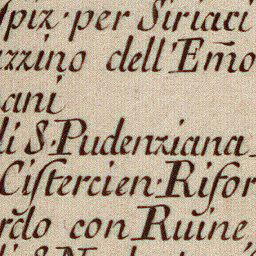 Spiz· per Siriaci
azzino dell'Em̃o
ani
di S· Pudenziana
Cistercien· Rifor
ardo con Ruine,